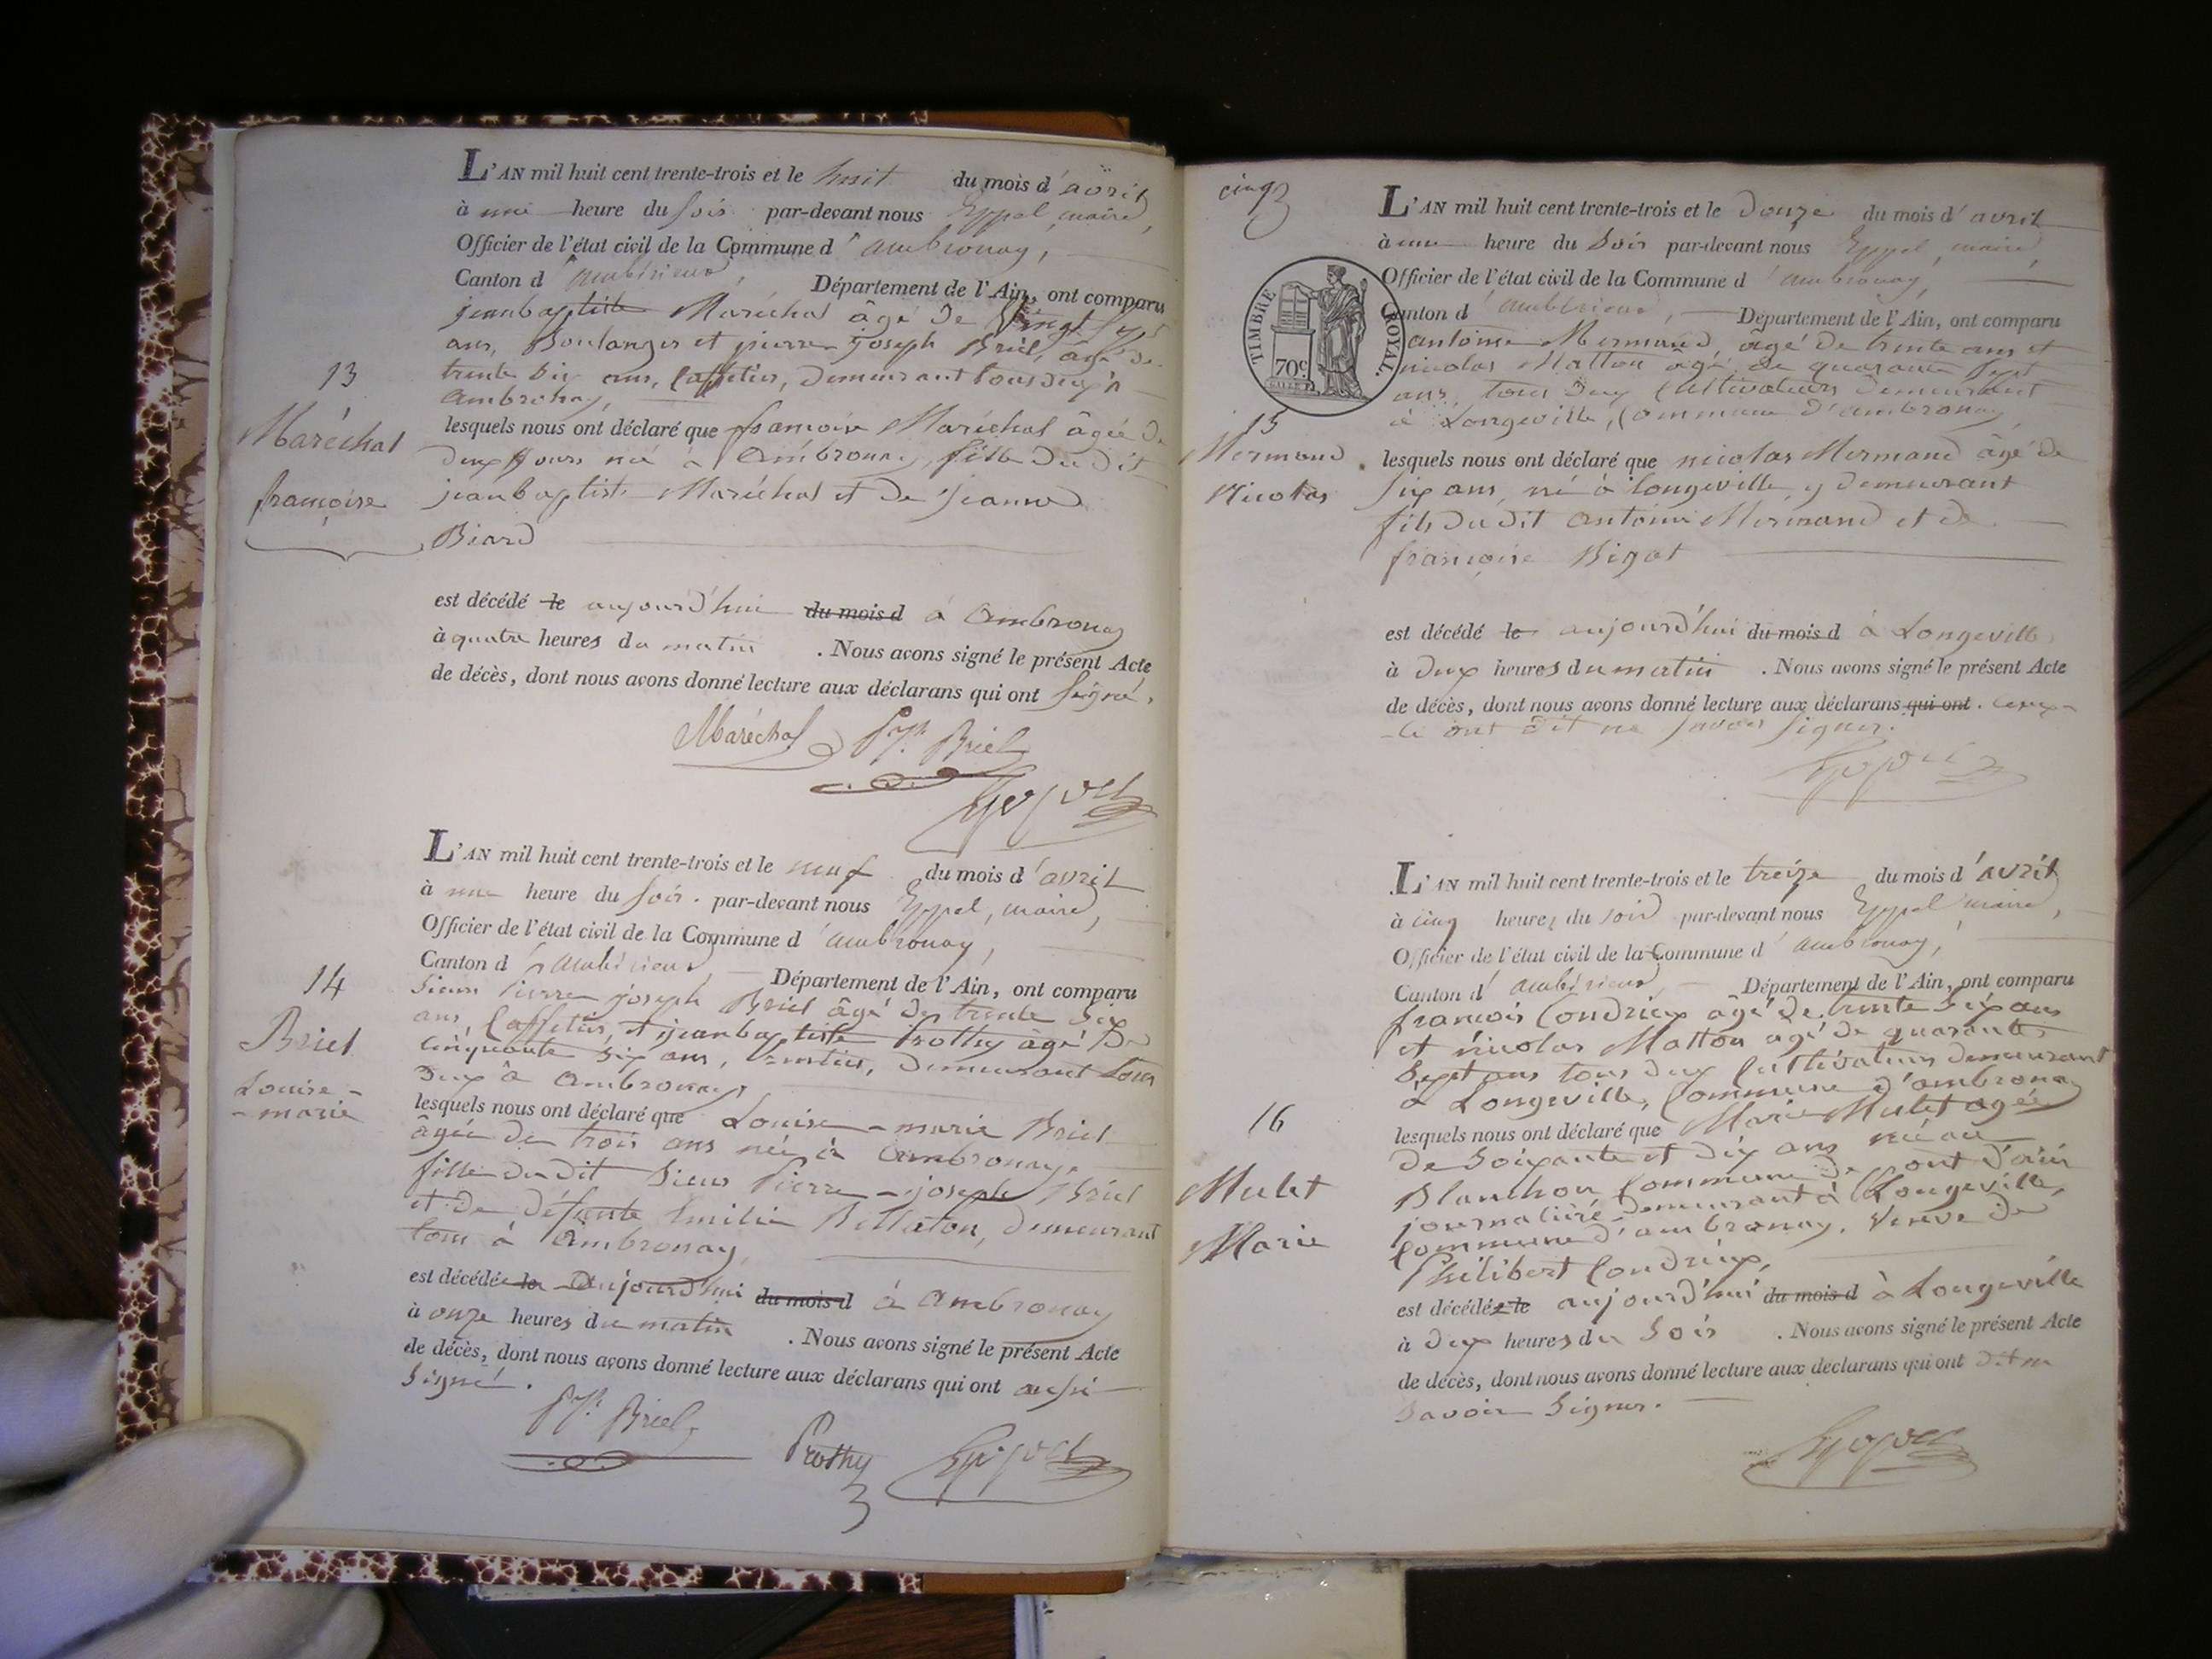 L'AN mil huit cent trente-trois et le huit du mois d'avril
à une heure du soir par-devant nous Eyppel, maire,
Officier de l'état civil de la Commune d'ambronay,
Canton d'ambérieux, Département de l'Ain, ont comparu
jeanbaptiste Maréchal âgé de vingt sept
ans, Boulanger et pierre joseph Briel, âgé de
trente six ans, Caffetier, demeurant tous deux à
ambronay,
13
Maréchal
françoise
lesquels nous ont déclaré que françoise Maréchal âgée de
deux jours née à Ambronay, fille du dit
jeanbaptiste Maréchal et de jeanne
Biard
est décédé le aujourd'hui du mois d à Ambronay
à quatre heures du matin. Nous avons signé le présent Acte
de décès, dont nous avons donné lecture aux déclarans qui ont signé.
Maréchal Briel
L'AN mil huit cent trente-trois et le neuf du mois d'avril
à une heure du soir. par-devant nous Eyppel, maire,
Officier de l'état civil de la Commune d'ambronay,
Canton d'ambérieux, Département de l'Ain, ont comparu
Sieur Pierre joseph Briel âgé de trente six
ans, Caffetier, et jeanbaptiste Prothy âgé de
cinquante six ans, Rentier, demeurant tous
deux à Ambronay,
14
Briel
Louise-
-marie
lesquels nous ont déclaré que Louise-marie Briel
âgée de trois ans née à Ambronay,
fille du dit Sieur Pierre-joseph Briel
et de défunte Emilie Bellaton, demeurant
tous à Ambronay,
est décédée le aujourd'hui du mois d à Ambronay
à onze heures du matin. Nous avons signé le présent Acte
de décès, dont nous avons donné lecture aux déclarans qui ont aussi
Signé.
Briel Prothy
cinq
L'AN mil huit cent trente-trois et le douze du mois d'avril
à une heure du Soir par-devant nous Eyppel, maire,
Officier de l'état civil de la Commune d'ambronay,
Canton d'ambérieux, Département de l'Ain, ont comparu
TIMBRE ROYAL.
70c
antoine Mermand, âgé de trente ans et
nicolas Matton âgé de quarante sept
ans, tous deux Cultivateurs demeurant
à Longeville, Commune d'ambronay
15
Mermand
Nicolas
lesquels nous ont déclaré que nicolas Mermand âgé de
six ans, né à longeville, y demeurant
fils du dit antoine Mermand et de
françoise Bigot
est décédé le aujourd'hui du mois d à Longeville
à deux heures du matin. Nous avons signé le présent Acte
de décès, dont nous avons donné lecture aux déclarans qui ont.
ont dit ne savoir signer.
L'AN mil huit cent trente-trois et le treize du mois d'avril
à cinq heures du soir par-devant nous Eyppel maire,
Officier de l'état civil de la Commune d'ambronay,
Canton d'ambérieux, Département de l'Ain, ont comparu
francois Condrieux âgé de trente six ans
et nicolas Matton agé de quarante
Sept ans tous deux Cultivateurs demeurant
à Longeville, Commune d'ambronay
16
Mulet
Marie
lesquels nous ont déclaré que Marie Mulet agée
de Soixante et dix ans née au
Blanchon Commune de pont d'ain
journalière demeurant à Longeville,
Commune d'ambronay, Veuve de
Philibert Condrieux,
est décédée le aujourd'hui du mois d à Longeville
à deux heures du Soir. Nous avons signé le présent Acte
de décès, dont nous avons donné lecture aux déclarans qui ont dit ne
Savoir Signer.